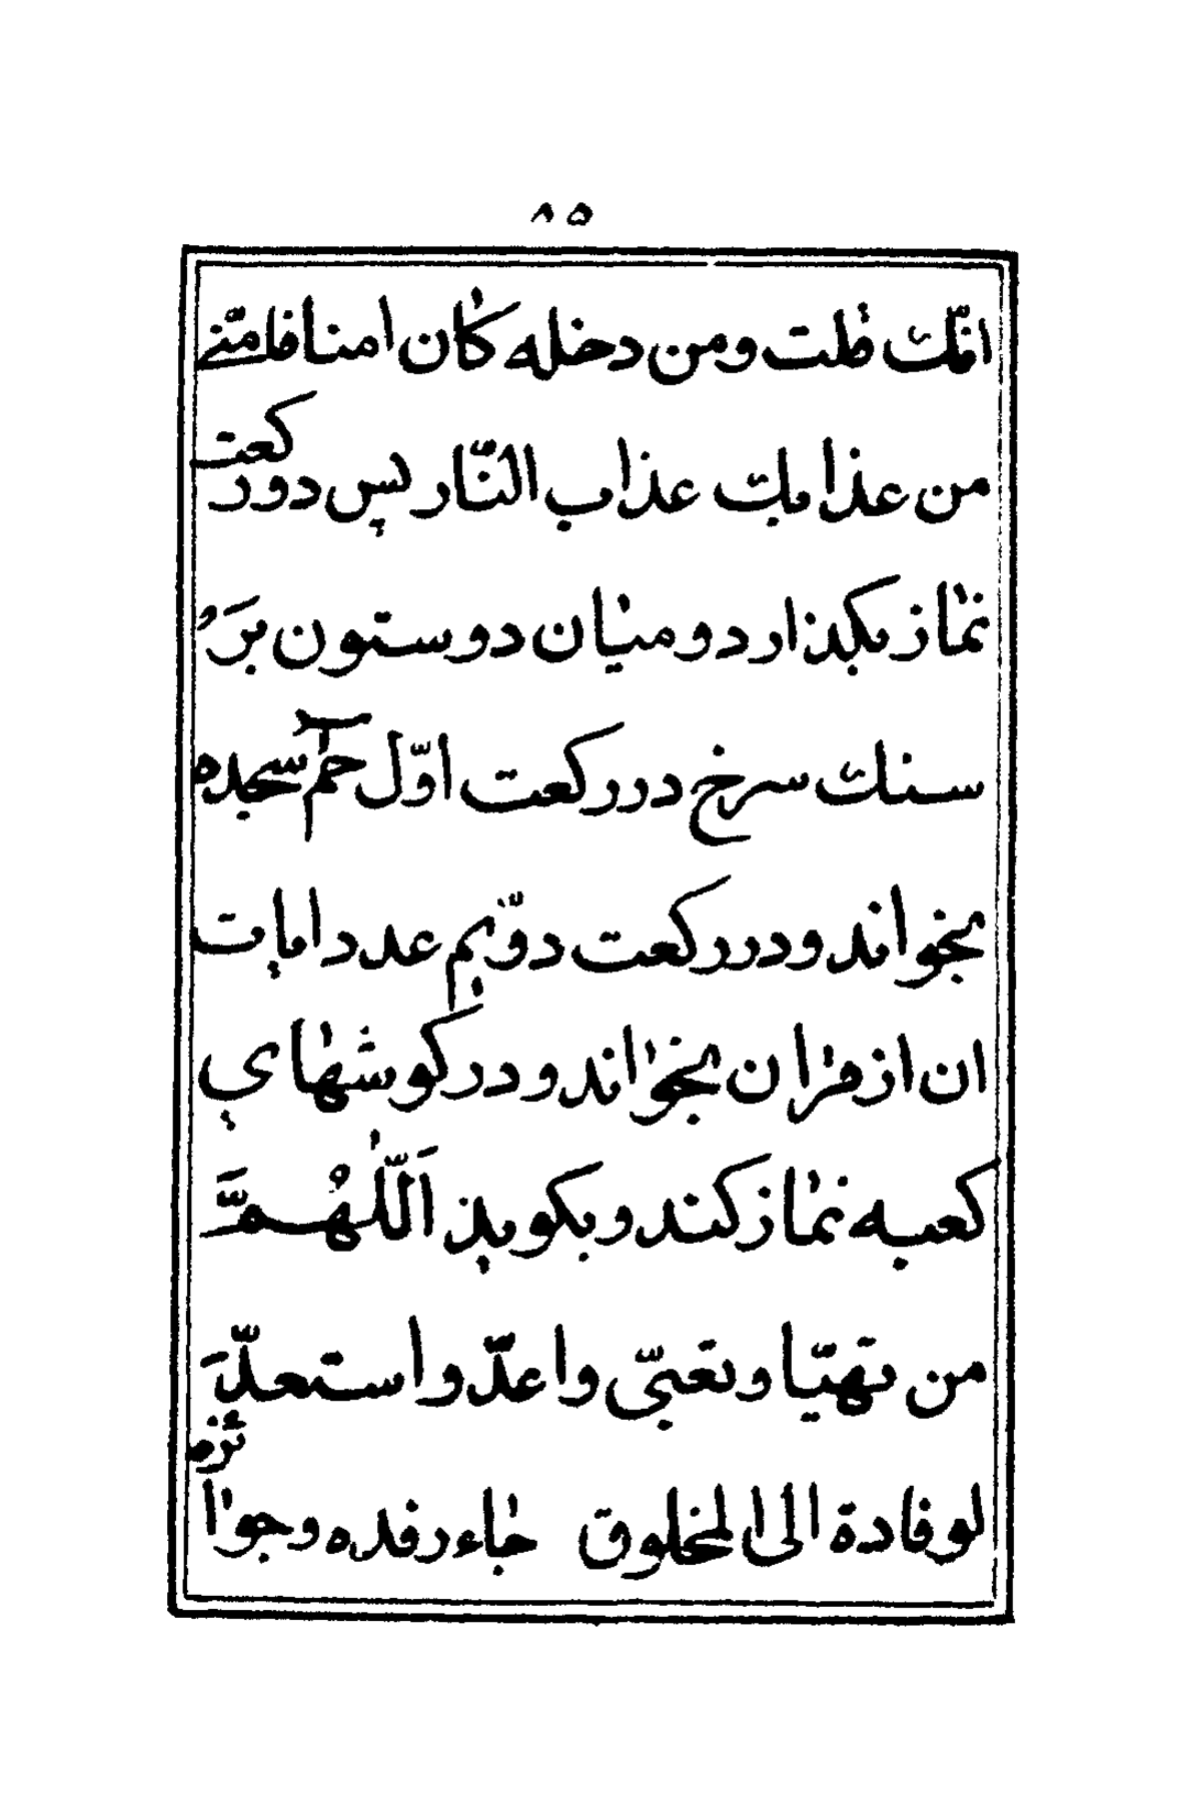 ۸۵
انّك قلت ومن دخله كان امنا فامنّے
من عذابك عذاب النّار پس دو ركعت
نماز بكذارد و ميان دو ستون بَر
سنك سرخ در ركعت اوّل حٰمٓ سجده
بخواند و در ركعت دوّيم عدد ايات
ان از قران بخواند و در كوشهاي
كعبه نماز كند و بكويد اَللّٰهُمَّ
من تهيّا و تعبّى و اعدّ و استعدَّ
لوفادة الى المخلوق رجاء رفده وجوائزه